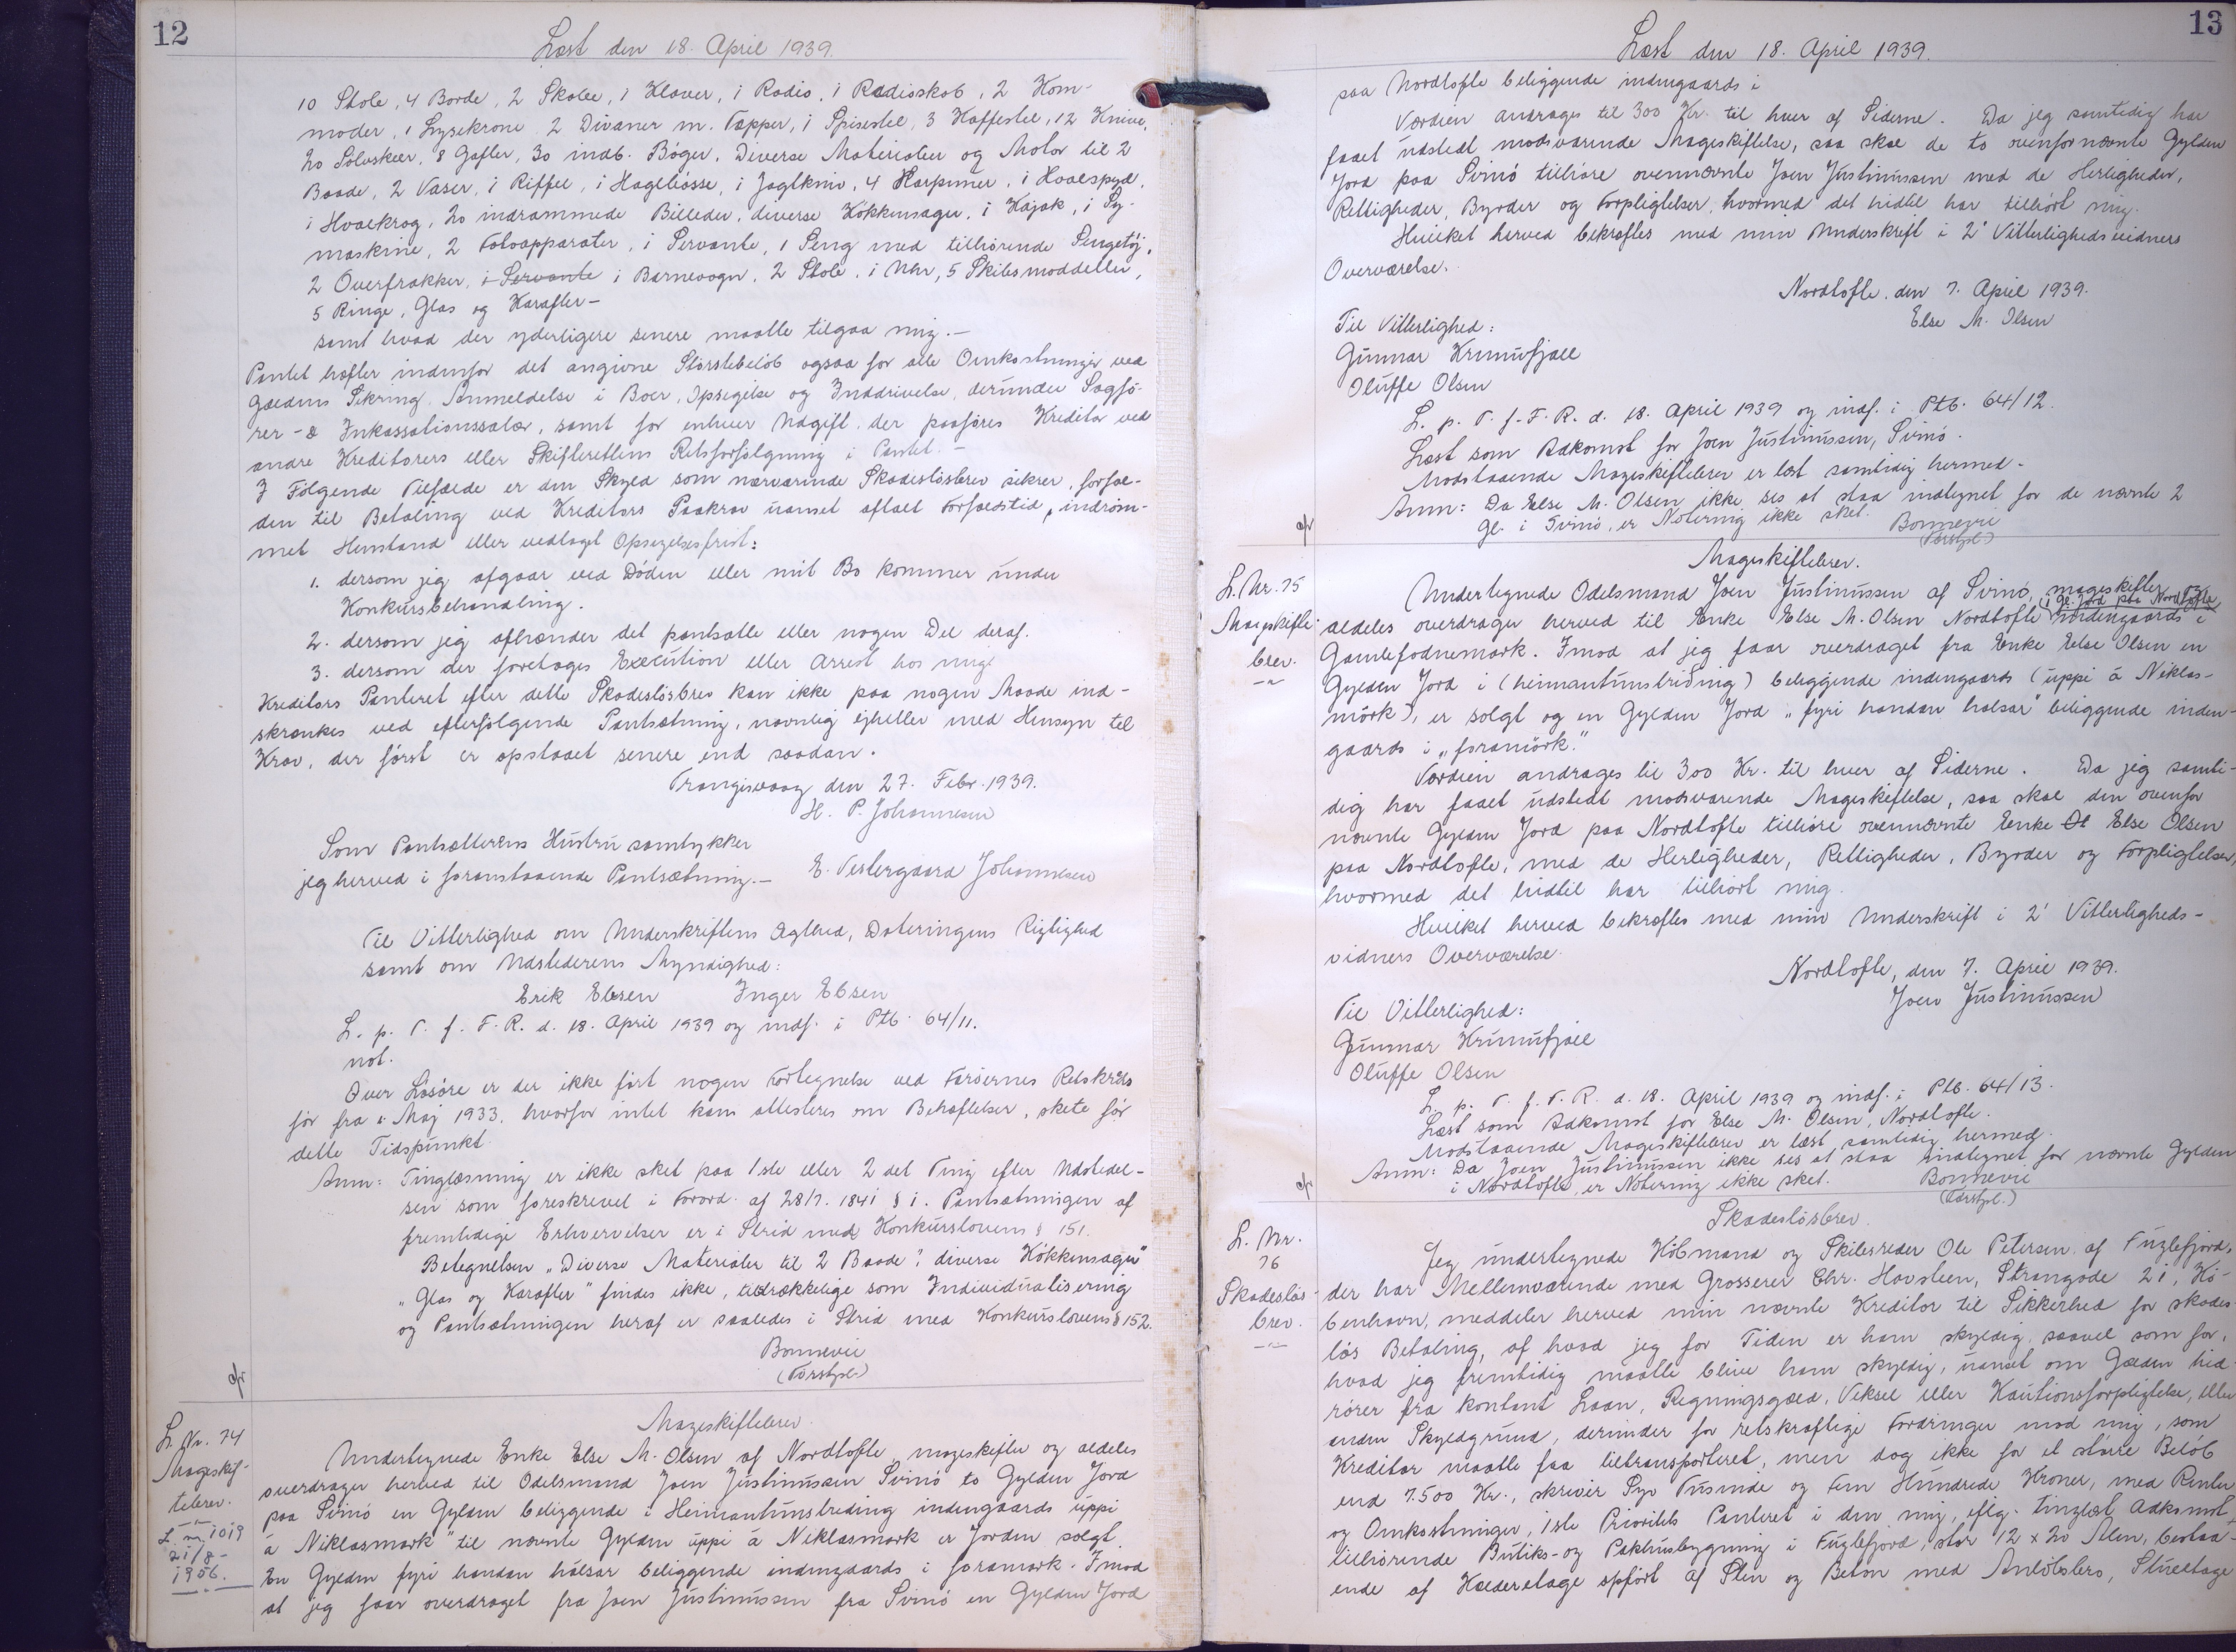 12
Læst den 18. April 1939.
10 Stole, 4 Borde, 2 Skabe, 1 Klaver, 1 Radio, 1 Radioskab, 2 Kom-
moder, 1 Lysekrone, 2 Divaner m. Tæpper, 1 Spisestel, 3 Kaffestel, 12 Knive,
20 Sølvskeer, 8 Gafler, 30 indb. Bøger, Diverse Materialier og Motor til 2
Baade, 2 Vaser, 1 Riffel, 1 Haglbøsse, 1 Jagtkniv, 4 Harpuner, 1 Hvalspyd,
1 Hvalkrog, 20 indrammede Billeder, diverse Køkkensager, 1 Kajak, 1 Sy-
maskine, 2 Fotoapparater, 1 Servante, 1 Seng med tilhørende Sengetøj,
2 Overfrakker, 1 Servante 1 Barnevogn, 2 Stole, 1 Uhr, 5 Skibsmoddeller,
5 Ringe, Glas og Karafler-
samt hvad der yderligere senere maatte tilgaa mig.-
Pantet hæfter indenfor det angivne Størstebeløb ogsaa for alle Omkostninger ved
Gældens Sikring, Anmeldelse i Boer, Opsigelse og Inddrivelse, derunder Sagfø-
rer- & Inkassationssalær, samt for enhver Udgift, der paaføres Kreditor ved
andre Kreditorers eller Skifterettens Retsforfølgning i Pantet.-
I Følgende Tilfælde er den Skyld som nærværende Skadesløsbrev sikrer, forfal-
den til Betaling ved Kreditors Paakrav uanset aftalt Forfaldstid, indrøm-
met Henstand eller vedtaget Opsigelsesfrist:
1. dersom jeg afgaar ved Døden eller mit Bo kommer under
Konkursbehandling.
2. dersom jeg afhænder det pantsatte eller nogen Del deraf.
3. dersom der foretages Execution eller Arrest hos mig.
Kreditors Panteret efter dette Skadesløsbrev kan ikke paa nogen Maade ind-
skrænkes ved efterfølgende Pantsætning, navnlig ejheller med Hensyn til
Krav, der først er opstaaet senere end saadan.
Trangisvaag den 27. Febr. 1939.
H. P. Johannesen
Som Pantsætterens Hustru samtykker
jeg herved i foranstaaende Pantsætning.- E. Vestergaard Johannesen
Til Vitterlighed om Underskriftens Ægthed, Dateringens Rigtighed
samt om Udstederens Myndighed:
Erik Ebsen Inger Ebsen
L. p. T. f. F. R. d. 18. April 1939 og indf. i Ptb. 64/11.
not.
Over Løsøre er der ikke ført nogen Fortegnelse ved Færøernes Retskreds
før fra 1. Maj 1933, hvorfor intet kan attesteres om Behæftelser, skete før
dette Tidspunkt.
Anm: Tinglæsning er ikke sket paa 1ste eller 2det Ting efter Udstedel-
sen som foreskrevet i Forord. af 28/7. 1841 § 1. Pantsætningen af
fremtidige Erhvervelser er i Strid med Konkurslovens § 151.
Betegnelsen „Diverse Materialer til 2 Baade", diverse Køkkensager"
„Glas og Karafler" findes ikke, tilstrækkelige som Individualisering
og Pantsætningen heraf er saaledes i Strid med Konkurslovens § 152.
Bonnevie
(Førstepl.)
L. Nr. 74
Mageskif-
tebrev.
L. nr. 1019
21/8-
1906.
Mageskiftebrev.
Undertegnede Enke Else M. Olsen af Nordtofte, mageskifter og aldeles
overdrager herved til Odelsmand Joen Justinussen Svinø to Gylden Jord
paa Svinø en Gylden beliggende i Heimantunstreding indengaards uppi
á Niklasmørk" til nævnte Gylden uppi á Niklasmørk er Jorden solgt.
En Gylden fyri handan hálsar beliggende indengaards i foramørk. Imod
at jeg faar overdraget fra Joen Justinussen fra Svinø en Gylden Jord
13
Læst den 18. April 1939.
paa Nordtofte beliggende indengaards i
Værdien andrages til 300 Kr. til hver af Siderne. Da jeg samtidig har
faaet udstedt modsvarende Mageskiftelse, saa skal de to ovenfornævnte Gylden
Jord paa Svinø tilhøre ovennævnte Joen Justinussen med de Herligheder,
Rettigheder, Byrder og Forpligtelser, hvormed det hidtil har tilhørt mig.
Hvilket herved bekræftes med min Underskrift i 2' Vitterlighedsvidners
Overværelse.
Nordtofte, den 7. April 1939.
Else M. Olsen
Til Vitterlighed:
Gunnar Krunufjall
Oluffe Olsen
L. p. T. f. F. R. d. 18. April 1939 og indf. i Ptb. 64/12.
Læst som Adkomst for Joen Justinussen, Svinø.
Modstaaende Mageskiftebrev er læst samtidig hermed.
Anm: Da Else M. Olsen ikke ses at staa indtegnet for de nævnte 2
Gl. i Svinø, er Notering ikke sket. Bonnevie
(Førstepl.)
L. Nr. 75
Mageskifte-
brev.
Mageskiftebrev.
Undertegnede Odelsmand Joen Justinussen af Svinø, mageskifter og
(1 Gl. Jord paa Nordtofte
aldeles overdrager herved til Enke Else M. Olsen Nordtofte indengaards i
Gamlefodnemørk. Imod at jeg faar overdraget fra Enke Else Olsen en
Gylden Jord i (heimantunstriding) beliggende indengaards (uppi á Niklas-
mörk), er solgt og en Gylden Jord „fyri handan halsar" beliggende inden-
gaards i „foramörk."
Værdien andrages til 300 Kr. til hver af Siderne. Da jeg samti-
dig har faaet udstedt modsvarende Mageskiftelse, saa skal den ovenfor
nævnte Gylden Jord paa Nordtofte tilhøre ovennævnte Enke Ol Else Olsen
paa Nordtofte, med de Herligheder, Rettigheder, Byrder og Forpligtelser,
hvormed det hidtil har tilhørt mig.
Hvilket herved bekræftes med min Underskrift i 2' Vitterligheds-
vidners Overværelse.
Nordtofte, den 7. April 1939.
Joen Justinussen
Til Vitterlighed:
Gunnar Krunufjall
Oluffe Olsen
L. p. T. f. F. R. d. 18. April 1939 og indf. i Ptb. 64/13.
Læst som Adkomst for Else M. Olsen, Nordtofte.
Modstaaende Mageskiftebrev er læst samtidig hermed.
Anm: Da Joen Justinussen ikke ses at staa indtegnet for nævnte Gylden
i Nordtofte, er Notering ikke sket. Bonnevie
(Førstepl.)
L. Nr.
76
Skadesløs-
brev.
Skadesløsbrev.
Jeg undertegnede Købmand og Skibsreder Ole Petersen af Fuglefjord,
der har Mellemværende med Grosserer Chr. Havsteen, Strandgade 21, Kø-
benhavn, meddeler herved min nævnte Kreditor til Sikkerhed for skades-
løs Betaling, af hvad jeg for Tiden er ham skyldig, saavel som for,
hvad jeg fremtidig maatte blive ham skyldig, uanset om Gælden hid-
rører fra kontant Laan, Regningsgæld, Veksel eller Kautionsforpligtelse, eller
anden Skyldgrund, derunder for retskraftige Fordringer mod mig, som
Kreditor maatte faa tiltransporteret, men dog ikke for et større Beløb
end 7.500 Kr., skriver Syv Tusinde og Fem Hundrede Kroner, med Renter
og Omkostninger, 1ste Prioritets Panteret i den mig, eflg. tinglæst Adkomst
tilhørende Butiks- og Pakhusbygning i Fuglefjord, stor 12 x 20 Alen, bestaa-
ende af Kælderetage opført af Sten og Beton med Anløbsbro, Stueetage